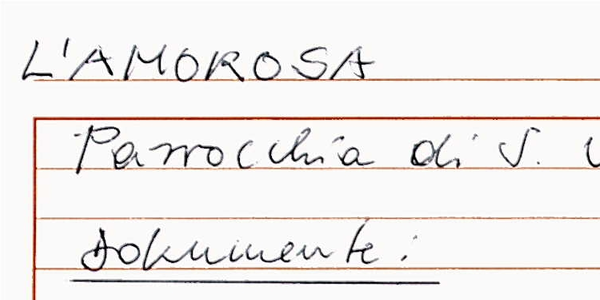 L'AMOROSA
Parrocchia di S.
Dokumente: